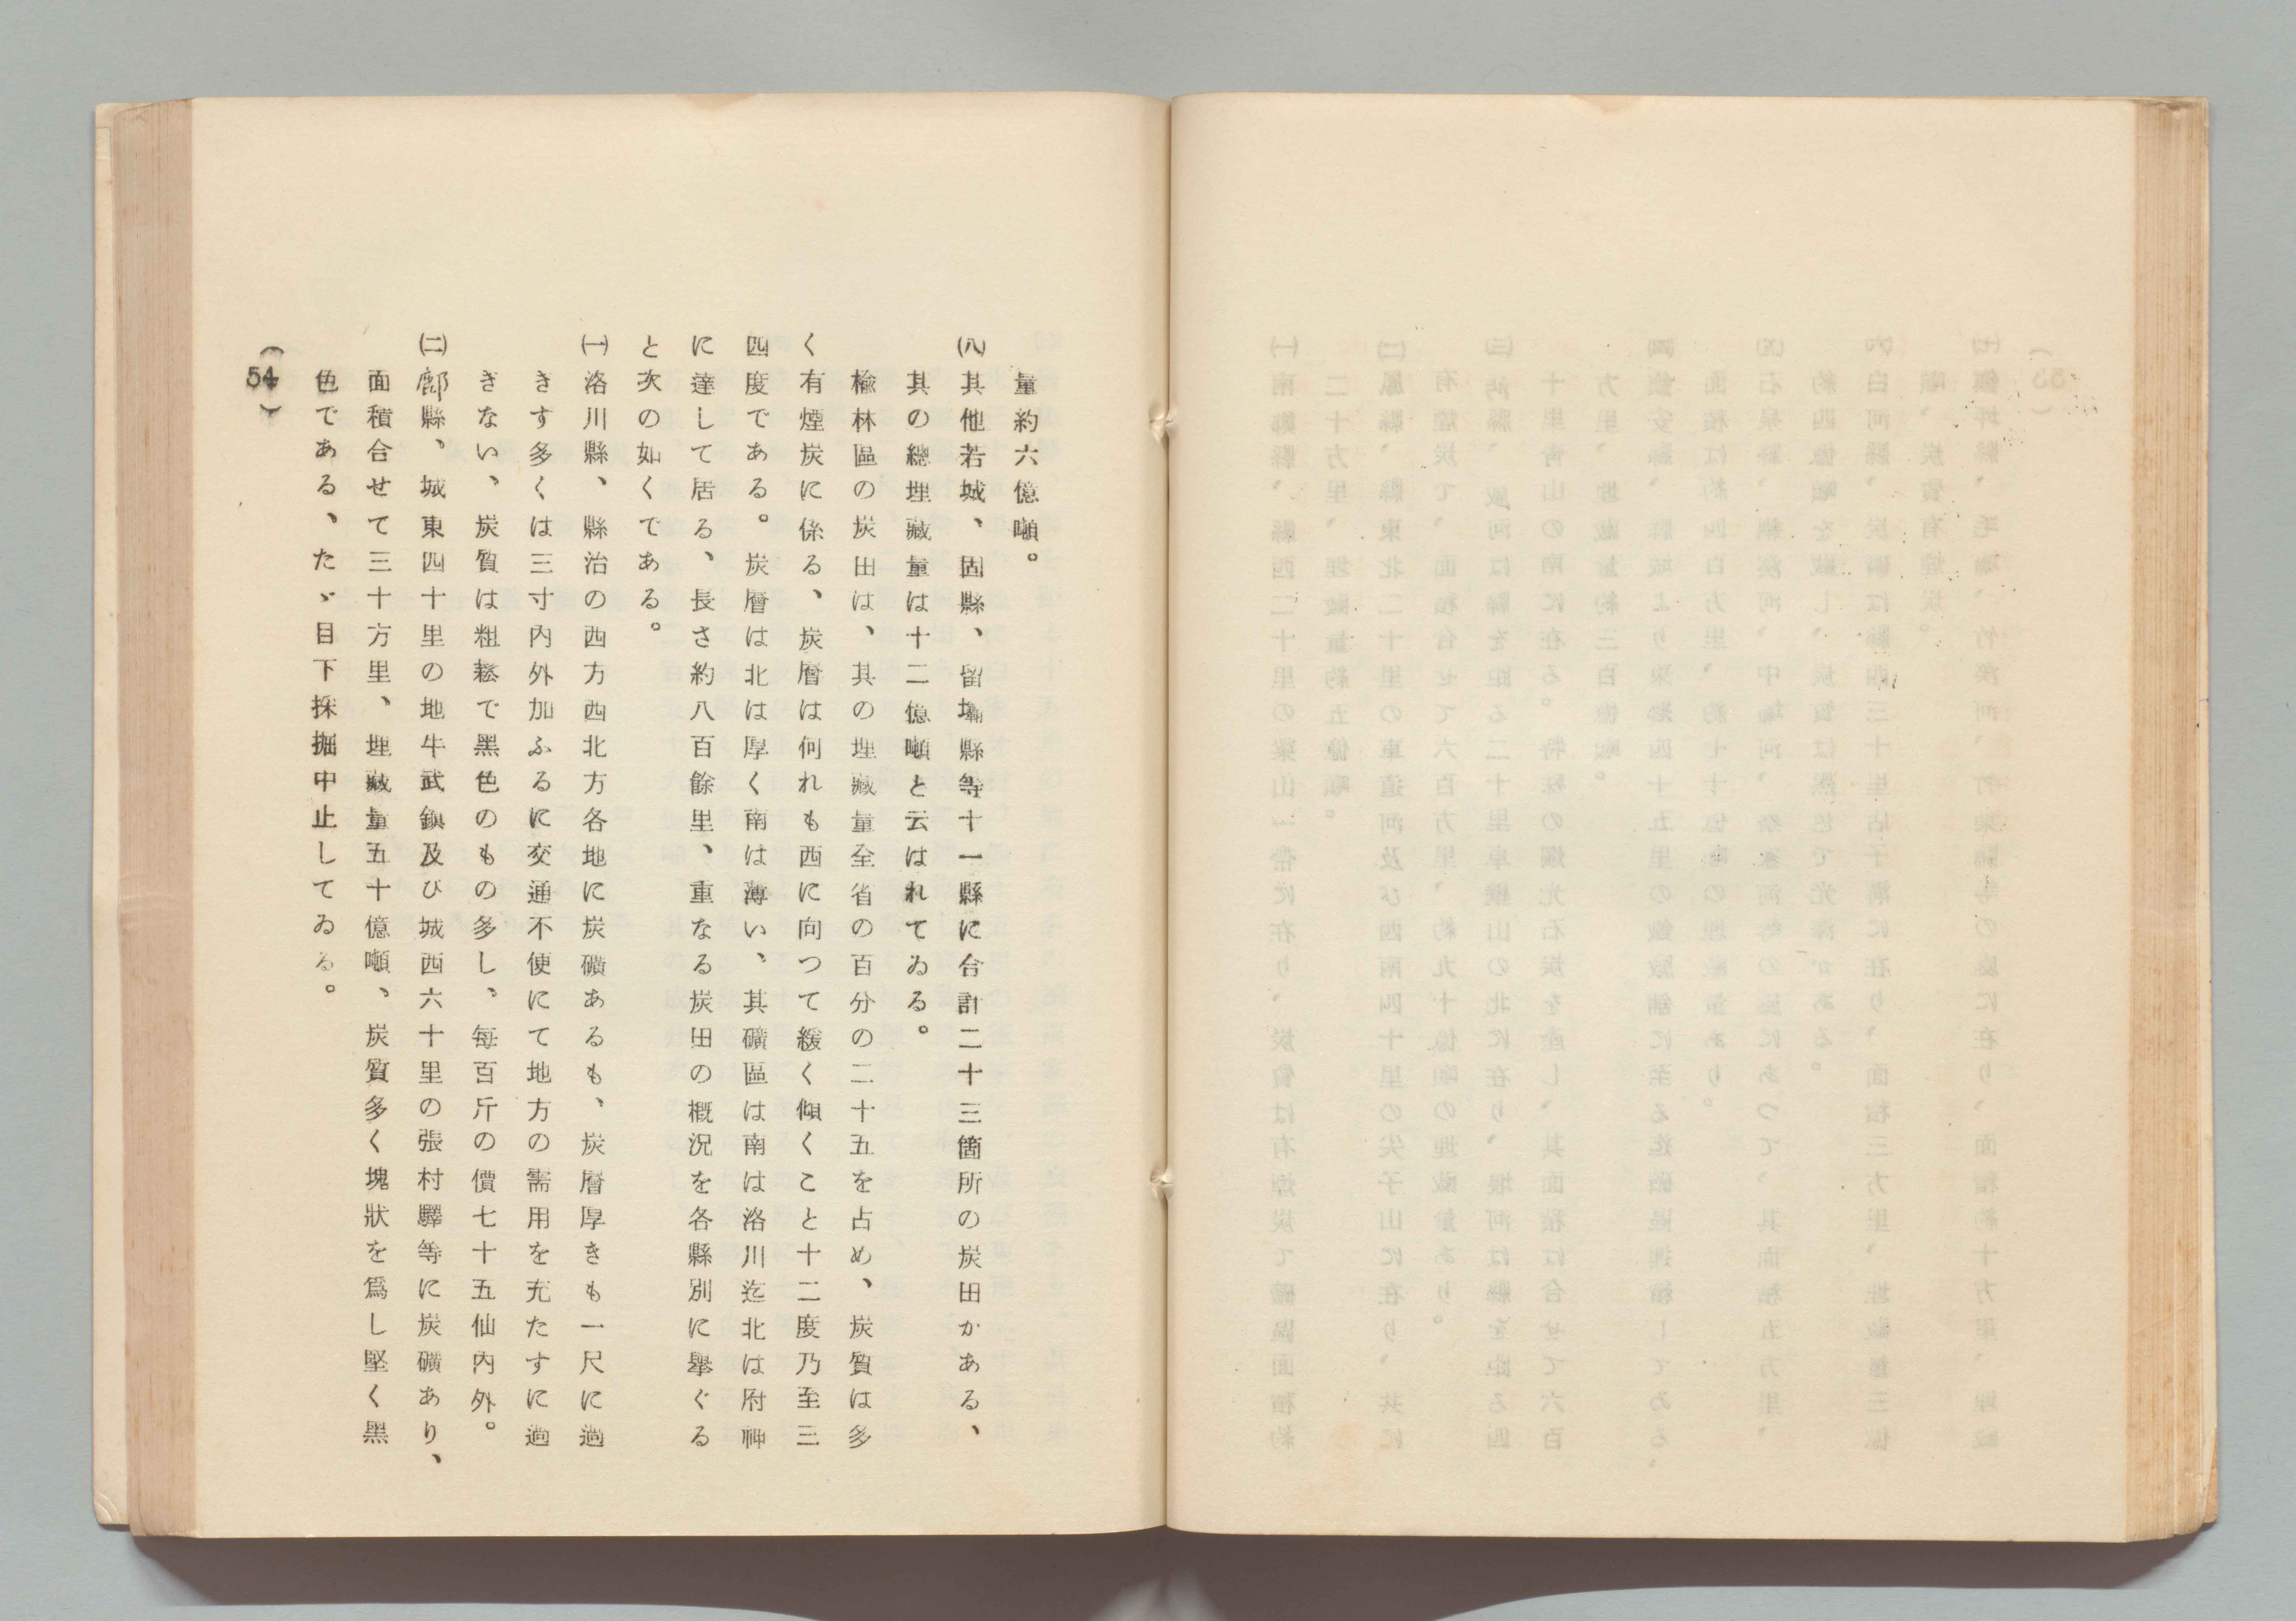 量約六億噸。
㈧其他若城、固縣、留壩縣等十一縣に合計二十三箇所の炭田かある、
其の總埋藏量は十二億噸と云はれてゐる。
楡林區の炭田は、其の埋藏量全省の百分の二十五を占め、炭質は多
く有煙炭に係る、炭層は何れも西に向つて緩く傾くこと十二度乃至三
四度である。炭層は北は厚く南は薄い、其礦區は南は洛川迄北は府神
に達して居る、長さ約八百餘里、重なる炭田の概況を各縣別に擧ぐる
と次の如くである。
㈠洛川縣、縣治の西方西北方各地に炭礦あるも、炭層厚きも一尺に過
きす多くは三寸內外加ふるに交通不便にて地方の需用を充たすに過
ぎない、炭質は粗鬆で黑色のもの多し、每百斤の價七十五仙內外。
㈡鄜縣、城東四十里の地牛武鎭及び城西六十里の張村驛等に炭礦あり、
面積合せて三十方里、埋藏量五十億噸、炭質多く塊狀を爲し堅く黑
色である、たゞ目下採掘中止してゐる。
(54)